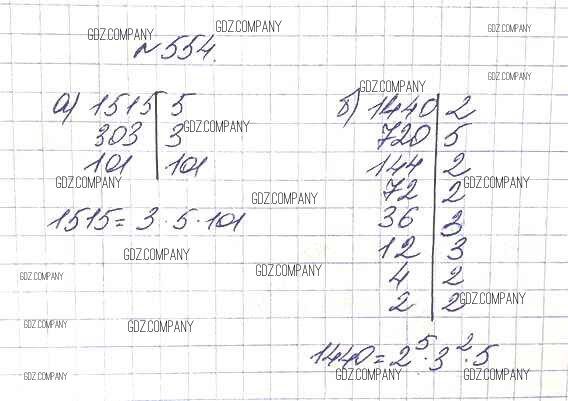 GDZ.COMPANY GDZ.COMPANY GDZ.COMPANY
№554.
GDZ.COMPANY
GDZ.COMPANY
а) 1515 | 5
303 | 3
101 | 101
GDZ.COMPANY
GDZ.COMPANY
1515 = 3 · 5 · 101
GDZ.COMPANY
GDZ.COMPANY
GDZ.COMPANY
GDZ.COMPANY
GDZ.COMPANY
GDZ.COMPANY
GDZ.COMPANY
б) 1440 | 2
720 | 5
144 | 2
GDZ.COMPANY
72 | 2
36 | 3
12 | 3
4 | 2
2 | 2
GDZ.COMPANY
1440 = 2⁵ · 3² · 5
GDZ.COMPANY GDZ.COMPANY